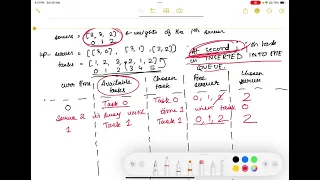 servers = [3, 3, 2] → weights of the ith server
0 1 2
server = [[3, 0], [3, 1], [2, 2]]
tasks = [1, 2, 3, 2, 1, 2]
0 1 2 3 4 5
At second j jth task
is INSERTED INTO THE
QUEUE.
curr time Available tasks Chosen task Free server Chosen server
0 Task 0 Task 0 0, 1, 2 2
Server 2 is busy until time 1 with task 0
1 Task 1 Task 1 0, 1, 2 2